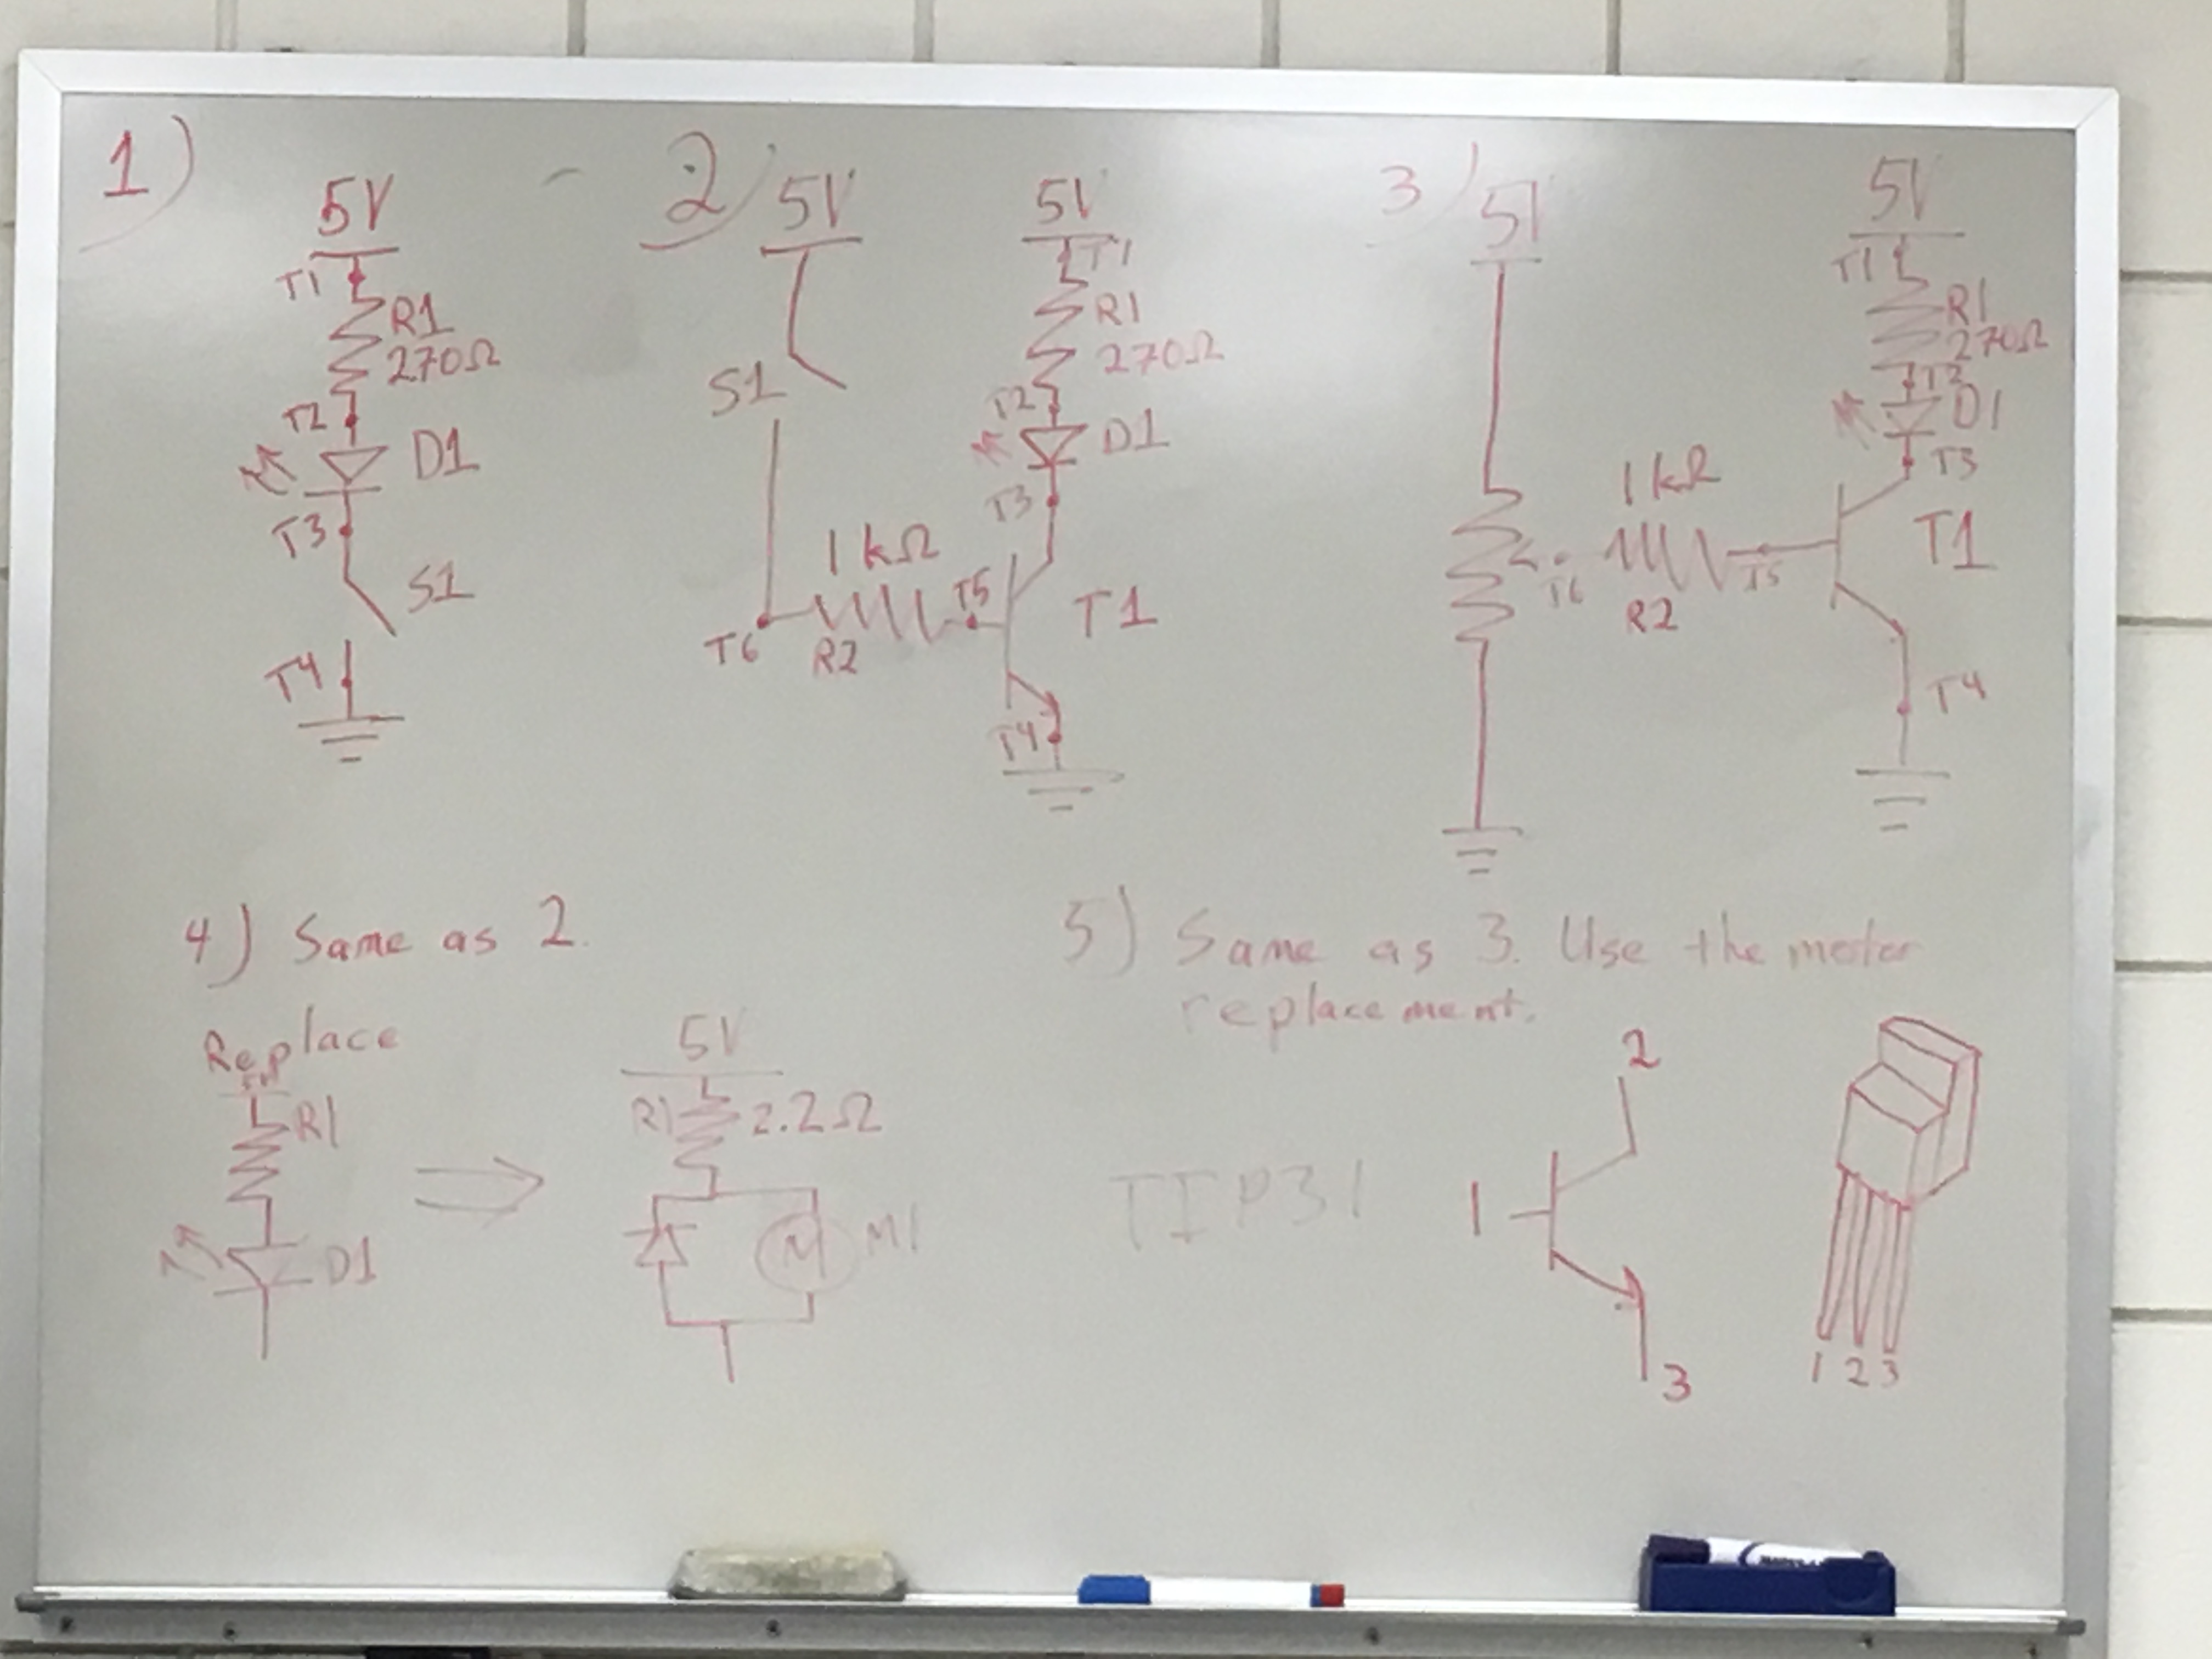 1)
5V
T1
R1
270Ω
T2
D1
T3
S1
T4
2)
5V
S1
T6
1kΩ
R2
T5
5V
T1
R1
270Ω
T2
D1
T3
T1
T4
3)
5V
T6
1kΩ
R2
T5
5V
T1
R1
270Ω
T2
D1
T3
T1
T4
4) Same as 2.
Replace
5V
R1
D1
5V
R1 2.2Ω
M M1
5) Same as 3. Use the motor
replacement.
TIP31
1
2
3
1 2 3